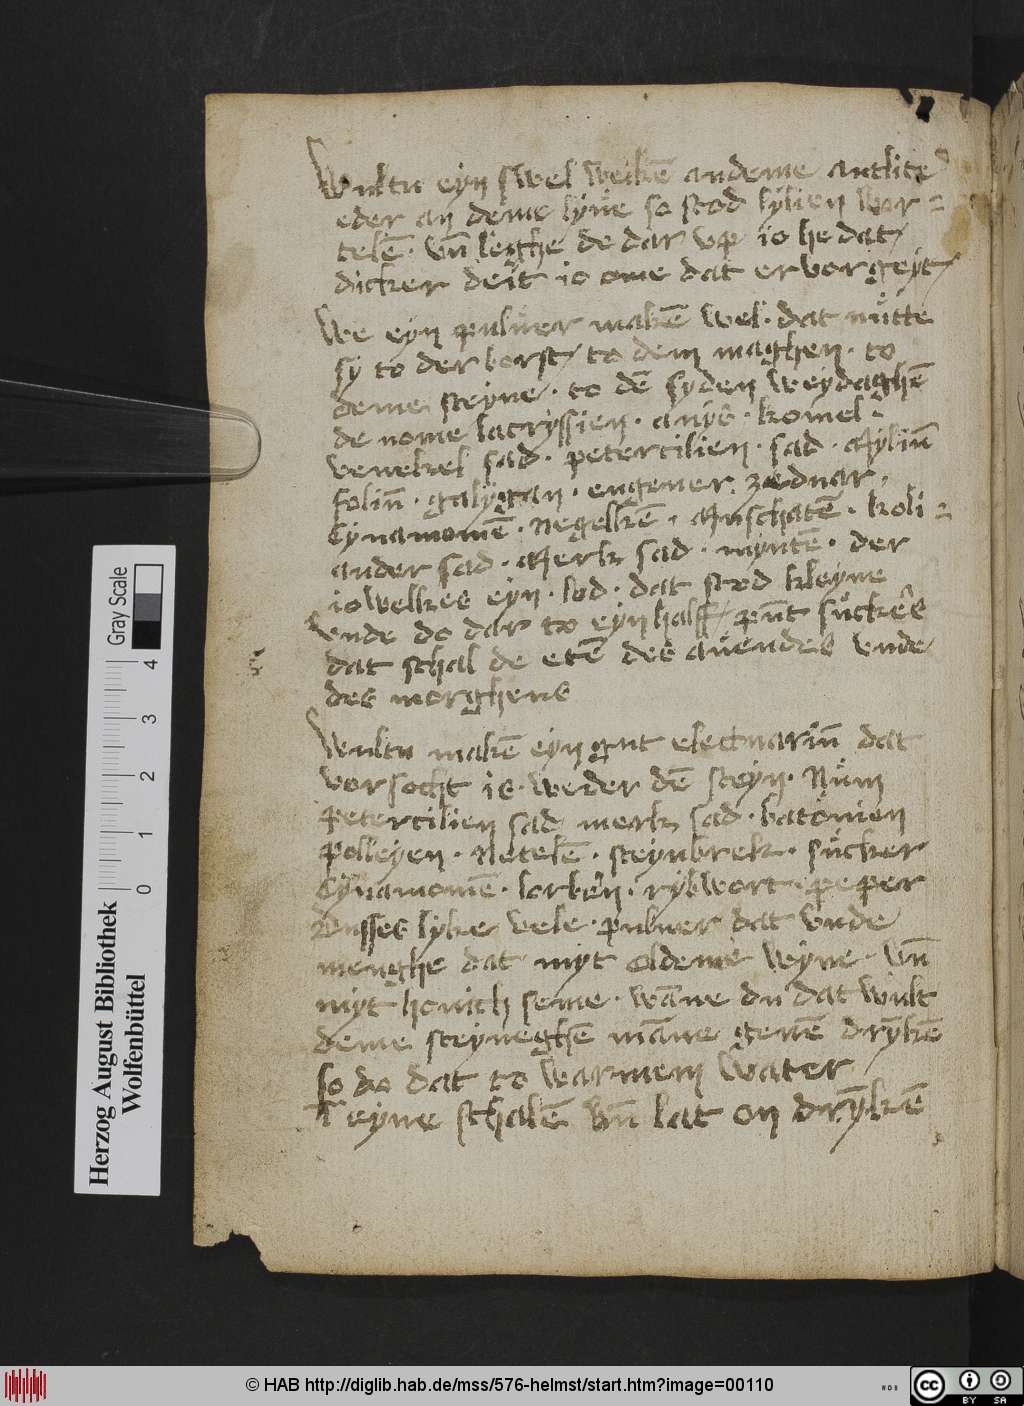 Wultu eyn swel weikē an deme antlite
eder an deme lyue so stod lylien wor=
telē · vn̄ legghe de dar vp io he dat
dicker deit io ome dat er vorgeyt
We eyn puluer makē wel · dat nůtte
sy to der borst to dem maghen · to
deme steyne · to dē syden weydaghē
de nome lacryssien · anys · komel ·
venekel sad · petercilien · sad ·
foliū · galygan · engeuer · zeduar ·
Cynamomē · Negelkē · Muschatē · koli=
ander sad · Merk sad · myntē · der
iowelkes eyn · lod · dat stod kleyne
vnde do dar to eyn half pūt sůckers
dat schal he etē des auendes vnde
des morghens
Wultu makē eyn gut electuariū dat
vorsocht is · weder dē steyn · Nům
petercilien sad merk sad · batonien
polleyen · Netelē · steynbrek · sůcker
Cynamomē · lorbern · wort · peper
Dusses lyke vele · puluer dat vnde
menghe dat myt oldeme wyne · vn̄
myt honich seme · wāne du dat wult
deme steyneghē māne geuē drȳkē
so do dat to warmem water
I eyne schalē vn̄ lat on drȳkē
Herzog August Bibliothek
Wolfenbüttel
Gray Scale
0 1 2 3 4
© HAB http://diglib.hab.de/mss/576-helmst/start.htm?image=00110
cc BY SA